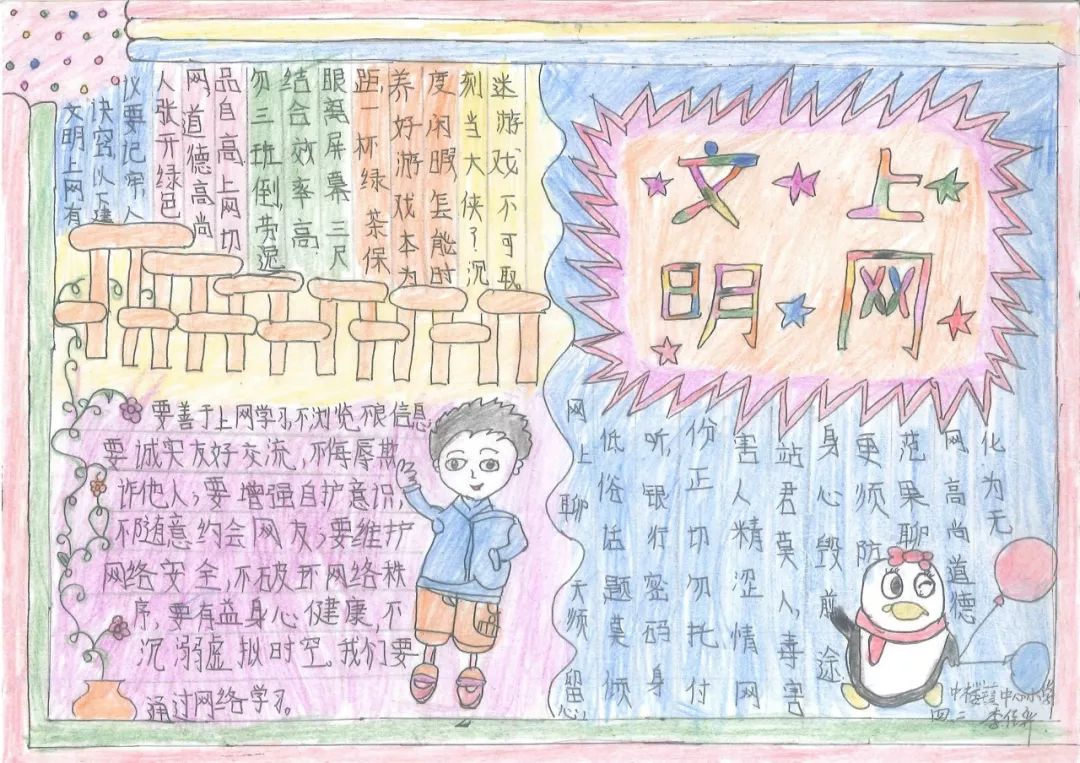 文上
明网
文明上网有
诀窍以下建
仪要记牢人
人张开绿色
网道德高尚
品自高上网切
勿三班倒,劳逸
结合效率高
眼离屏幕三尺
距,一杯绿茶保
养好游戏本为
度闲暇怎能时
刻当大侠?沉
迷游戏不可取
要善于上网学习,不浏览不良信息
要诚实友好交流,不侮辱欺
诈他人;要增强自护意识,
不随意约会网友;要维护
网络安全,不破坏网络秩
序,要有益身心健康,不
沉溺虚拟时空。我们要
通过网络学习。
网上聊天须留心
低俗话题莫倾
听,银行密码身
份正切勿托付
害人精涩情网
站君莫入,毒害
身心毁前途
更须防
范果聊
网高尚道德
化为无
中心小学
四.二